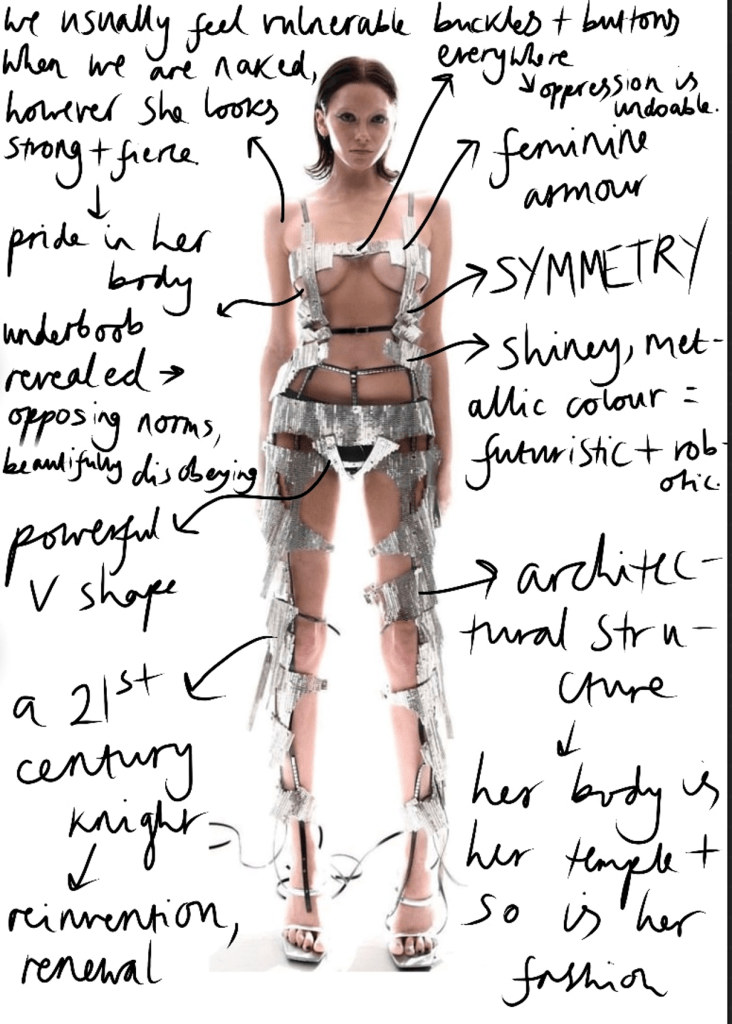 we usually feel vulnerable
when we are naked,
however she looks
strong + fierce.
pride in her
body
underboob
revealed →
opposing norms,
beautifully disobeying
powerful
V shape
a 21st
century
knight
reinvention,
renewal
buckles + buttons
everywhere
↘ oppression is
undoable.
feminine
armour
SYMMETRY
shiney, met-
allic colour =
futuristic + rob-
otic.
architec-
tural stru-
cture
her body is
her temple +
so is her
fashion